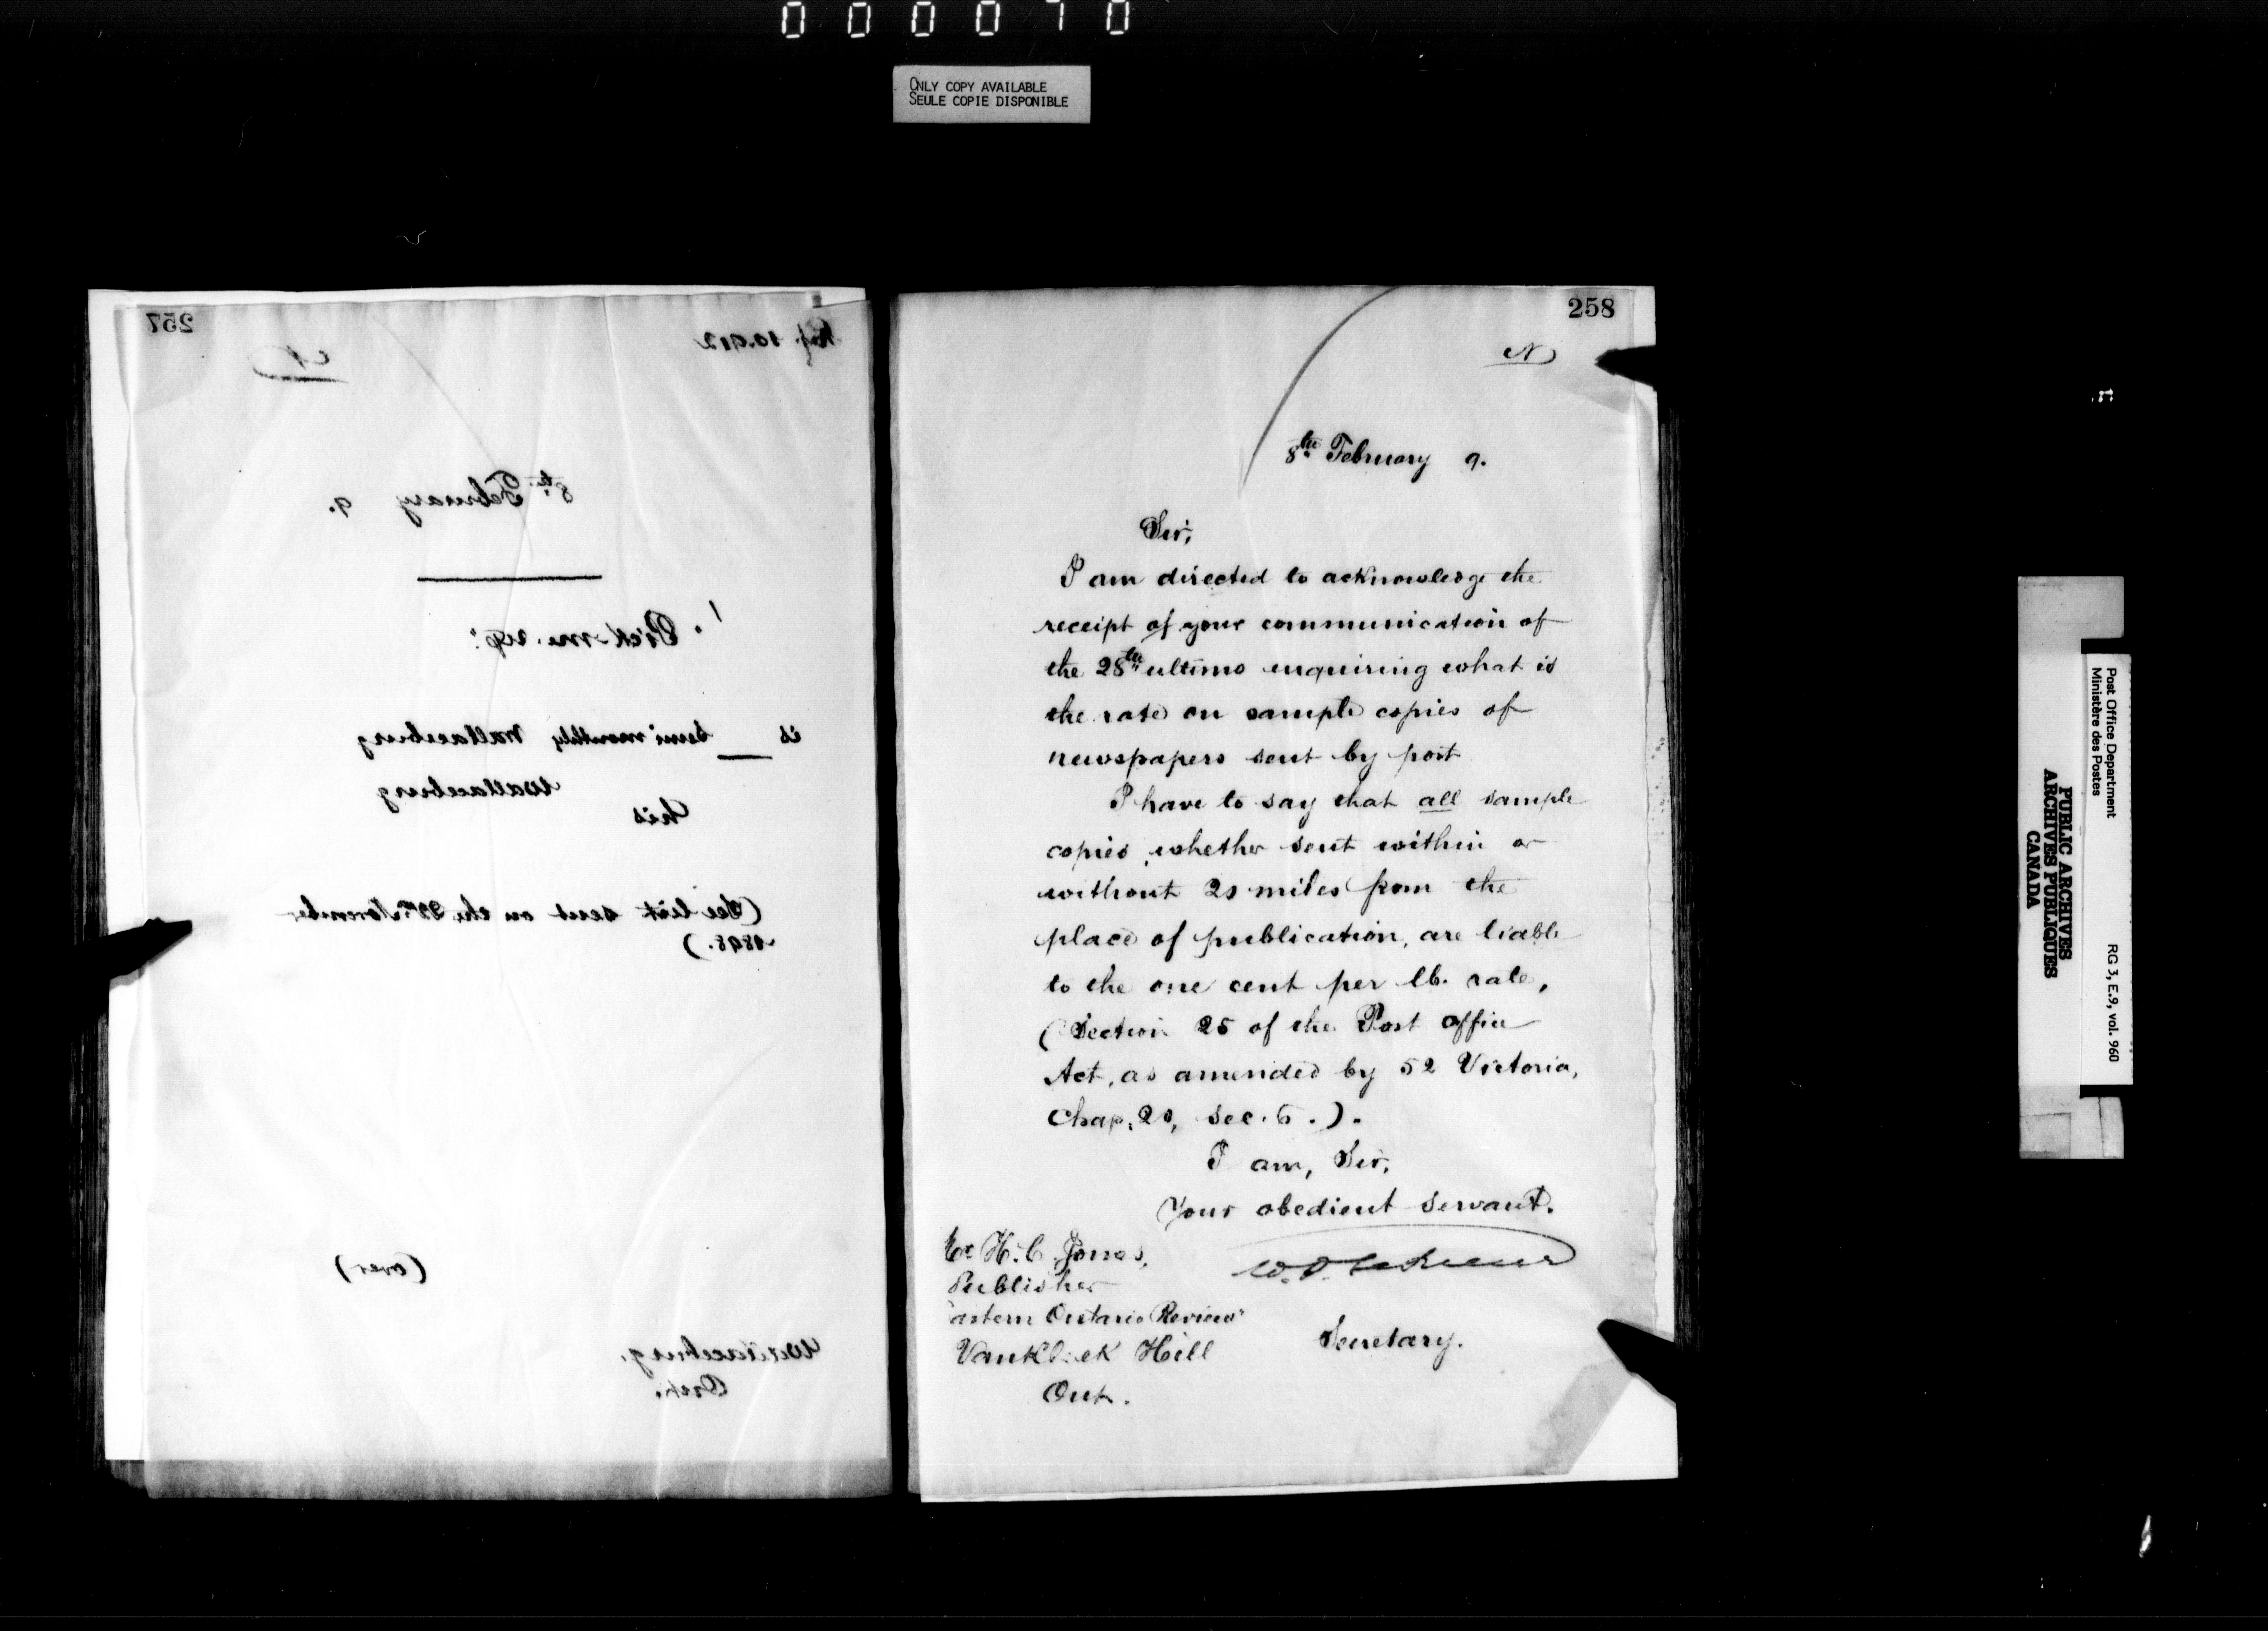 000070
ONLY COPY AVAILABLE
SEULE COPIE DISPONIBLE
257
Ref. 10.912
N
8th February 9.
is semi monthly Wallaceburg
Wallaceburg
his
(See list sent on the 22nd November
1898.)
(over)
Wallaceburg.
Ont.
258
N
8th February 9.
Sir,
I am directed to acknowledge the
receipt of your communication of
the 28th ultimo enquiring what is
the rate on sample copies of
newspapers sent by post
I have to say that all sample
copies, whether sent within or
without 20 miles from the
place of publication, are liable
to the one cent per lb. rate,
(Section 25 of the Post Office
Act, as amended by 52 Victoria,
Chap. 20, sec. 6.).
I am, Sir,
Your obedient servant.
H. C. Jones,
Publisher
astern Ontario Review"
Vankleek Hill
Ont.
Secretary.
Post Office Department
Ministère des Postes
RG 3, E.9, vol. 960
PUBLIC ARCHIVES
ARCHIVES PUBLIQUES
CANADA